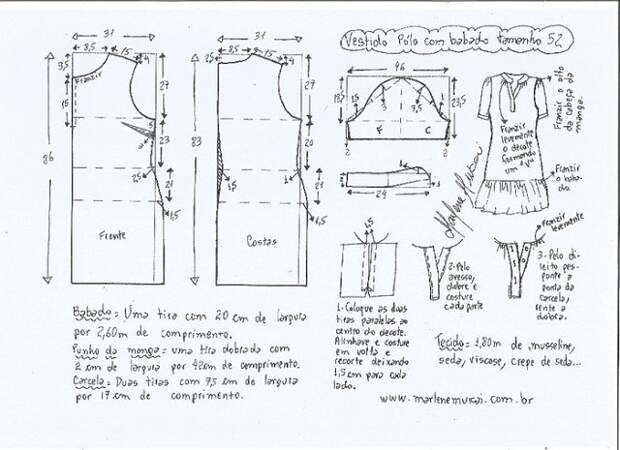 Vestido Pólo com babado tamanho 52
31
8,5
15
4
3,5
Franzir
16
27
86
5
23
3
2,5
21
1,5
Frente
31
8,5
15
4
27
83
20
3,5
1
21
1,5
Costas
46
18,5
15
3,5
23,5
F
C
2
2
2
24
Franzir o alto
da cabeça da
manga.
Franzir
levemente
o decote
formando
um "V"
Franzir
o baba-
do.
Marlene Mukai
3,5
1- Coloque as duas
tiras paralelas ao
centro do decote.
Alinhave e costure
em volta e
recorte deixando
1,5 cm para cada
lado.
2- Pelo
avesso,
dobre e
costure
cada parte
Franzir
levemente
3- Pelo di-
reito pes-
ponte a
ponta da
carcela,
rente a
dobra.
Babado = Uma tira com 20 cm de largura
por 2,60m de comprimento.
Punho da manga = uma tira dobrada com
2 cm de largura por 42cm de comprimento.
Carcela = Duas tiras com 7,5 cm de largura
por 17 cm de comprimento.
Tecido = 1,80m de musseline,
seda, viscose, crepe de seda...
www.marlenemukai.com.br